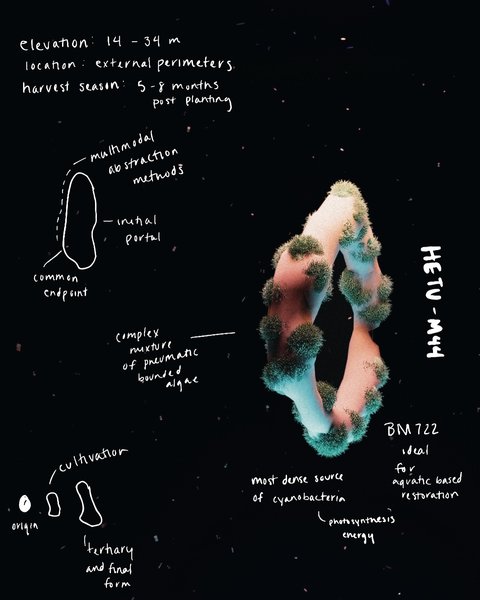 elevation: 14 - 34 m
location: external perimeters
harvest season: 5-8 months
post planting
multimodal
abstraction
methods
initial
portal
common
endpoint
HETU-M44
complex
mixture
of pneumatic
bounded
algae
BM722
ideal
for
aquatic based
restoration
most dense source
of cyanobacteria
photosynthesis
energy
cultivation
origin
tertiary
and final
form